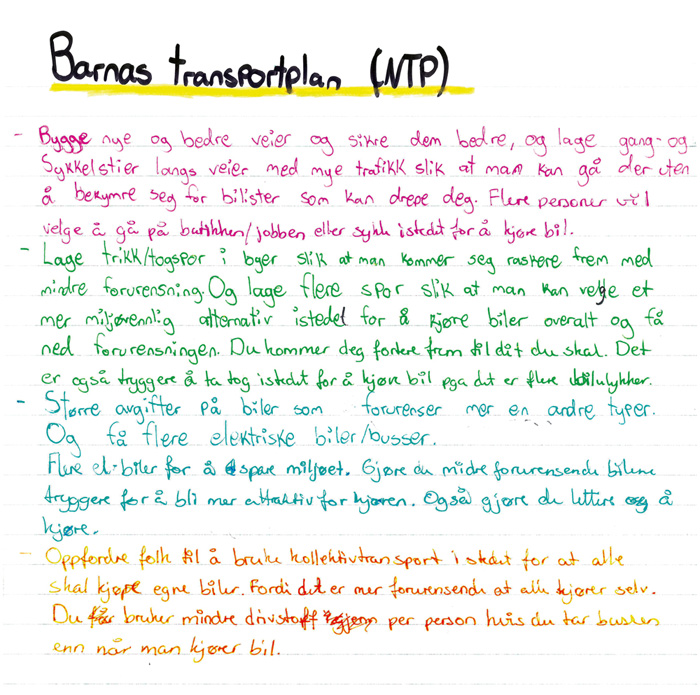 Barnas transportplan (NTP)
- Bygge nye og bedre veier og sikre dem bedre, og lage gang- og
Sykkelstier langs veier med mye trafikk slik at man kan gå der uten
å bekymre seg for bilister som kan drepe deg. Flere personer vil
velge å gå på butikken/jobben eller sykle istedet for å kjøre bil.
- Lage trikk/togspor i byer slik at man kommer seg raskere frem med
mindre forurensning. Og lage flere spor slik at man kan velge et
mer miljøvennlig alternativ istedet for å kjøre biler overalt og få
ned forurensningen. Du kommer deg fortere frem til dit du skal. Det
er også tryggere å ta tog istedet for å kjøre bil pga det er flere bilulykker.
- Større avgifter på biler som forurenser mer en andre typer.
Og få flere elektriske biler/busser.
Flere el-biler for å spare miljøet. Gjøre du midre forurensende bilene
tryggere for å bli mer attraktiv for kjøren. Også gjøre du lettere å
kjøre.
- Oppfordre folk til å bruke kollektivtransport i stedet for at alle
skal kjøpe egne biler. Fordi det er mer forurensende at alle kjører selv.
Du bruker mindre drivstoff per person hvis du tar bussen
enn når man kjører bil.